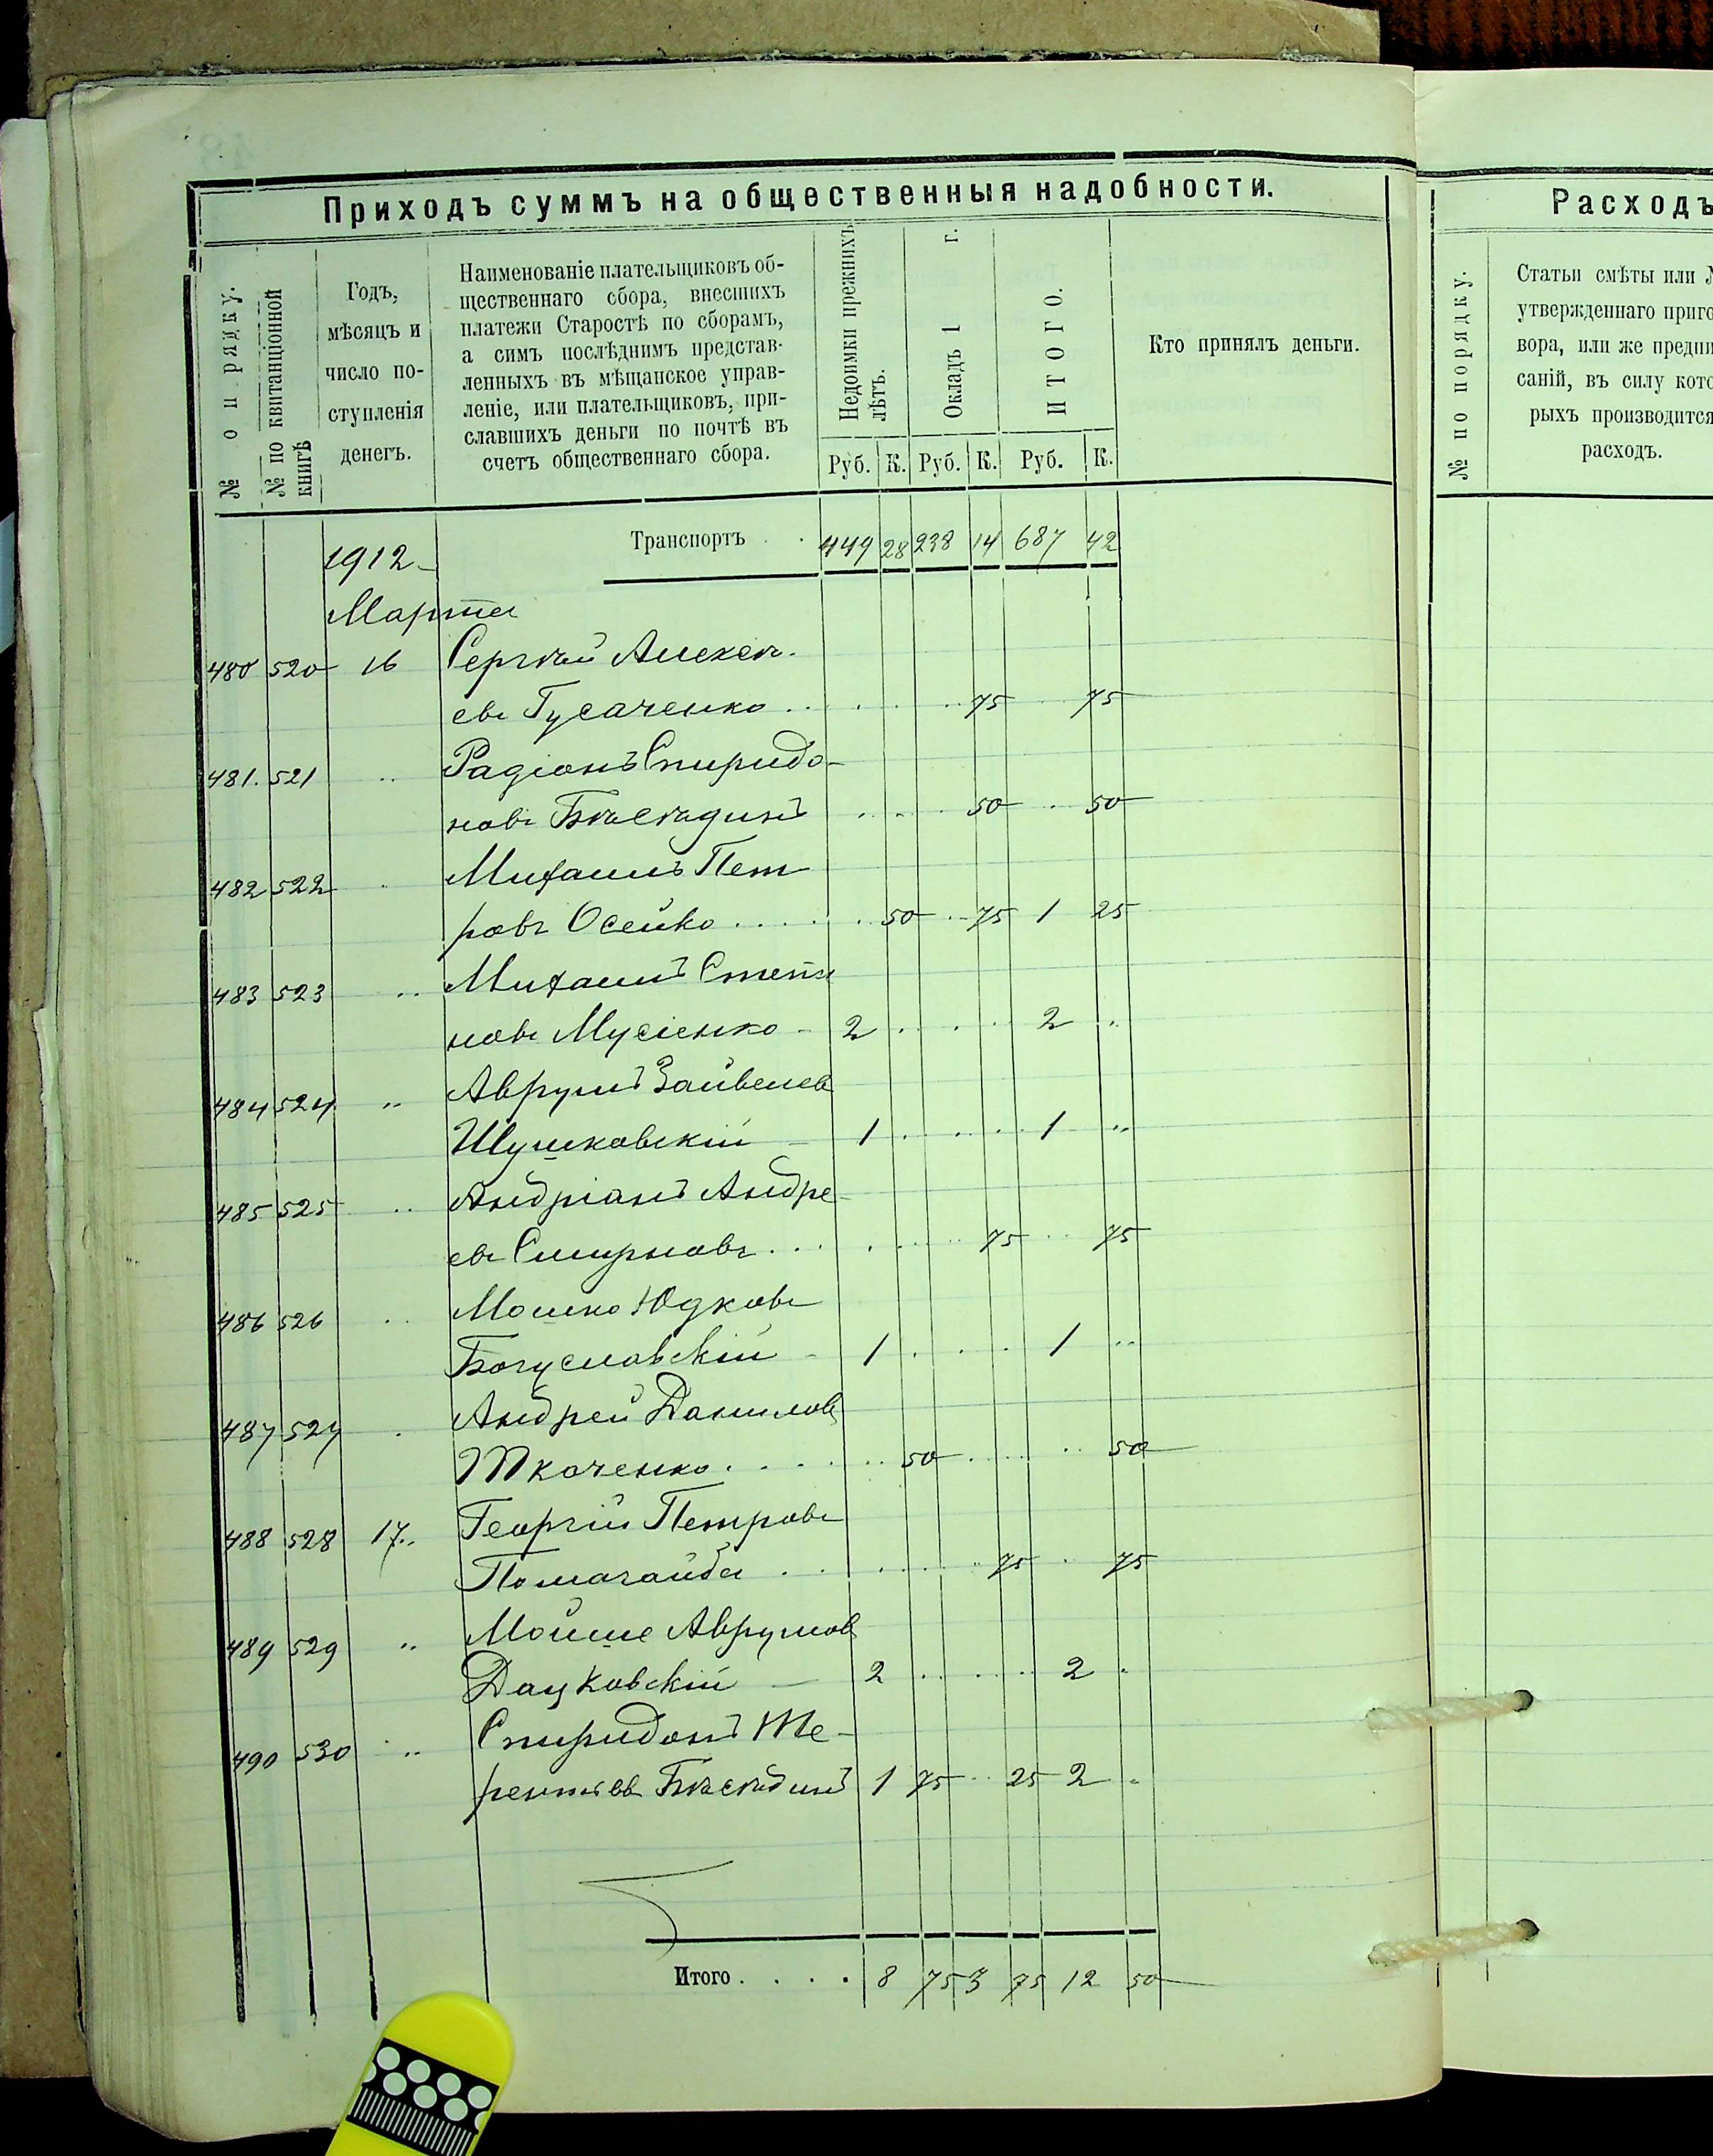 Приходъ суммъ на общественныя надобности.
№ по порядку.
№ по квитанціонной книгѣ
Годъ,
мѣсяцъ и
число по-
ступленія
денегъ.
Наименованіе плательщиковъ об-
щественнаго сбора, внесшихъ
платежи Старостѣ по сборамъ,
а симъ послѣднимъ представ-
ленныхъ въ мѣщанское управ-
леніе, или плательщиковъ, при-
славшихъ деньги по почтѣ въ
счетъ общественнаго сбора.
Недоимки прежнихъ
лѣтъ.
Окладъ 1 г.
ИТОГО.
Кто принялъ деньги.
Руб. К. Руб. К. Руб. К.
Транспортъ . . 449 28 238 14 687 42
1912
Марта
480 520 16 Сергѣй Алексѣ-
евъ Гусаченко . . . 75 75
481. 521 .. Радіонъ Спиридо-
новъ Бѣсѣдинъ . . . 50 . 50
482 522 .. Михаилъ Пет
ровъ Осейко . . . 50 75 1 25
483 523 .. Михаилъ Степа
новъ Мусіенко - 2 . . . 2 ..
484 524 .. Аврумъ Зайвелев
Шушковскій - 1 . . . 1 ..
485 525 .. Андріанъ Андре-
евъ Смирновъ . . . 75 75
486 526 .. Мошко Юдковъ
Богуславскій - 1 . . . 1 ..
487 527 . Андрей Данилов
Ткаченко . . . 50 . . . 50
488 528 17.. Георгій Петровъ
Помагайба . . . 75 . 75
489 529 .. Мойше Аврумов
Дацковскій - 2 . . . 2 .
490 530 .. Спиридонъ Те-
рентьевъ Бѣсѣдинъ 1 75 25 2 ..
Итого . . . . 8 75 3 75 12 50
Расходъ
№ по порядку.
Статьи смѣты или №
утвержденнаго приго
вора, или же предпи
саній, въ силу кото
рыхъ производится
расходъ.